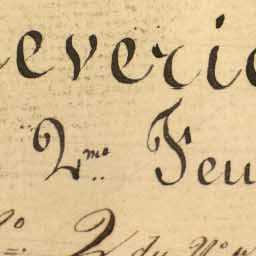 everie
2me Feu
2 du No